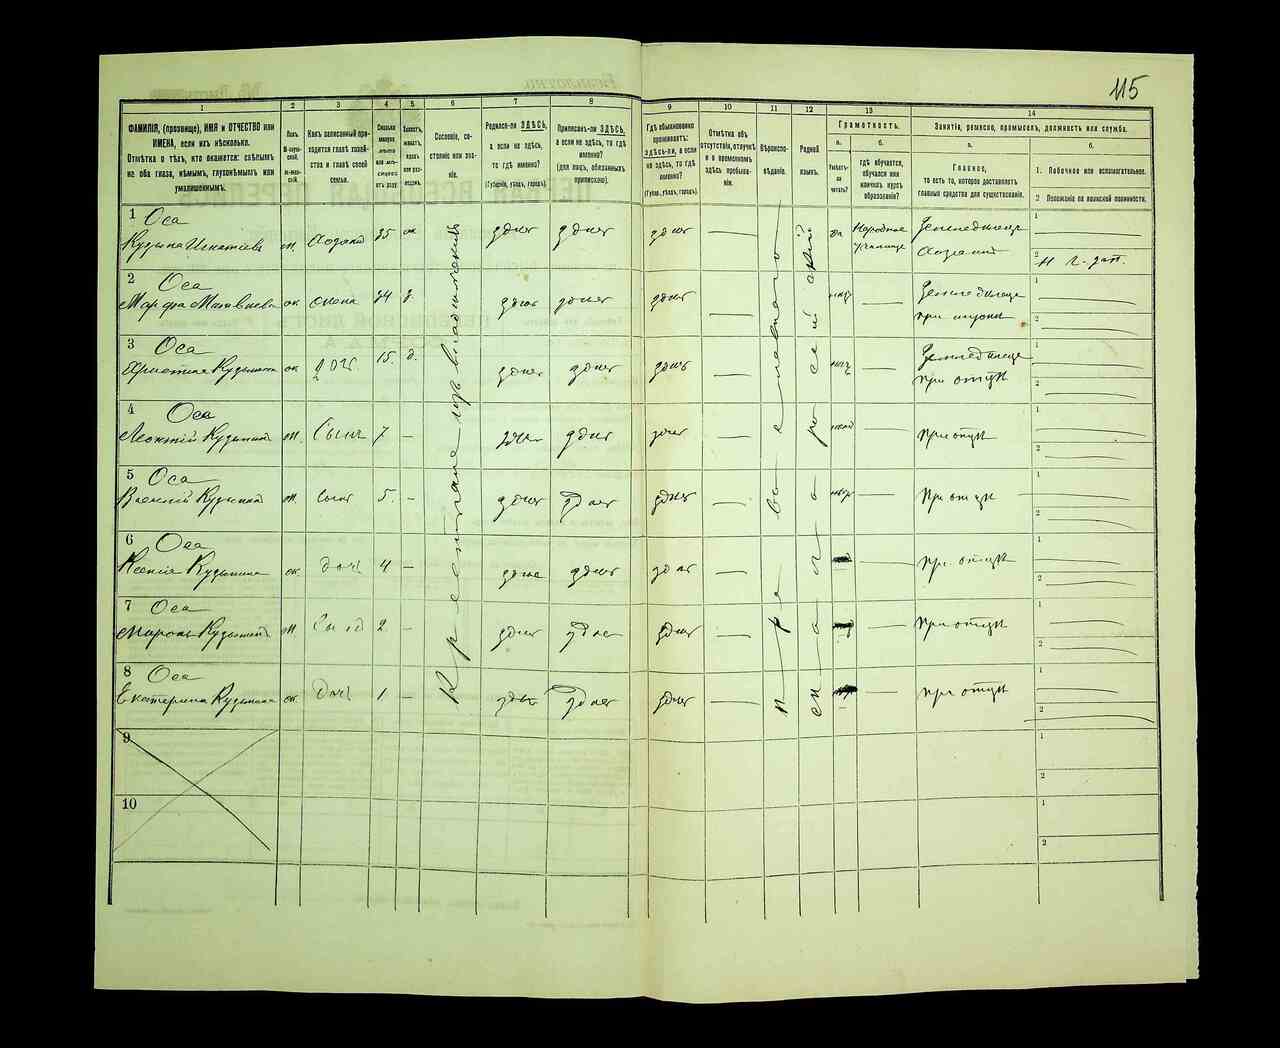 115
1 2 3 4 5 6 7 8 9 10 11 12 13 14
ФАМИЛІЯ, (прозвище), ИМЯ и ОТЧЕСТВО или
ИМЕНА, если ихъ нѣсколько.
Отмѣтка о тѣхъ, кто окажется: слѣпымъ
на оба глаза, нѣмымъ, глухонѣмымъ или
умалишеннымъ.
Полъ.
М-мужской.
Ж-женскій.
Какъ записанный приходится
главѣ хозяйства
и главѣ своей
семьи.
Сколько
минуло
лѣтъ
или мѣсяцевъ
отъ роду.
Холостъ,
женатъ,
вдовъ
или разведенъ.
Сословіе, состояніе
или званіе.
Родился-ли ЗДѢСЬ,
а если не здѣсь,
то гдѣ именно?
(Губернія, уѣздъ, городъ).
Приписанъ-ли ЗДѢСЬ,
а если не здѣсь, то гдѣ
именно?
(для лицъ, обязанныхъ
припискою).
Гдѣ обыкновенно
проживаетъ:
ЗДѢСЬ-ли, а если
не здѣсь, то гдѣ
именно?
(Губер., уѣздъ, городъ).
Отмѣтка объ
отсутствіи, отлучкѣ
и о временномъ
здѣсь пребываніи.
Вѣроисповѣданіе.
Родной
языкъ.
Грамотность.
а.
Умѣетъ-ли
читать?
б.
гдѣ обучается,
обучался или
кончилъ курсъ
образованія?
Занятіе, ремесло, промыселъ, должность или служба.
а.
Главное,
то есть то, которое доставляетъ
главныя средства для существованія.
б.
1. Побочное или вспомогательное.
2 Положеніе по воинской повинности.
1 Оса
Кузьма Игнатьевъ м. Хозяинъ 35 ж здѣсь здѣсь здѣсь — да Народное училище Земледѣлецъ Хозяинъ
2 Оса
Марфа Матвѣева ж жена 34 з. здѣсь здѣсь здѣсь — — Земледѣлица при мужѣ
3 Оса
Кузьмина ж дочь 15 д. здѣсь здѣсь здѣсь — — Земледѣлица при отцѣ
4 Оса
Леонтій Кузьминъ м. Сынъ 7 — здѣсь здѣсь здѣсь — — При отцѣ
5 Оса
Василій Кузьминъ м. сынъ 5 — здѣсь здѣсь здѣсь — — При отцѣ
6 Оса
Ксенія Кузьмина ж. дочь 4 — здѣсь здѣсь здѣсь — при отцѣ
7 Оса
Миронъ Кузьминъ м. Сынъ 2 — здѣсь здѣсь здѣсь — — При отцѣ
8 Оса
Екатерина Кузьмина ж. Дочь 1 — здѣсь здѣсь здѣсь — — при отцѣ
9
10
Крестьяне изъ
Православнаго